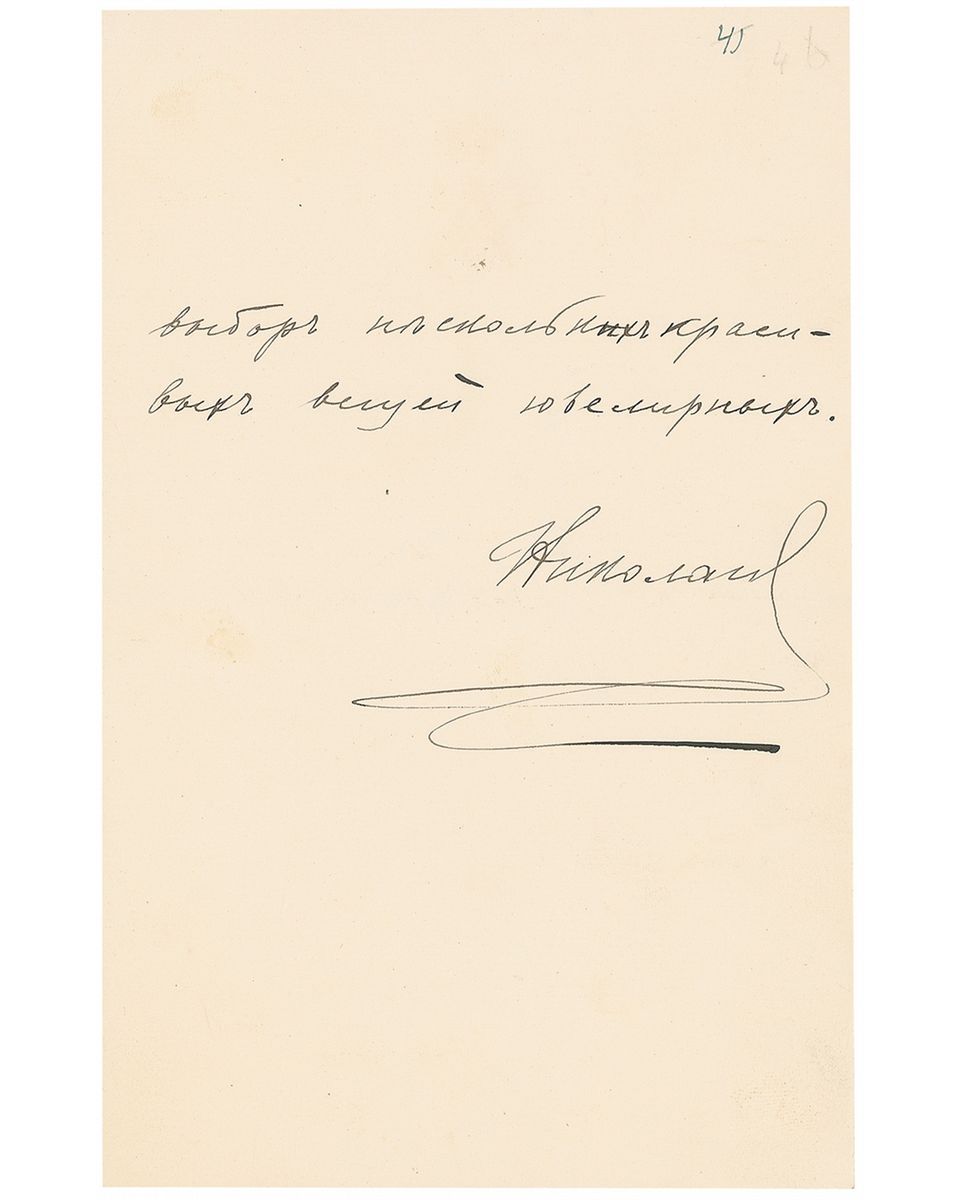 45
46
выборъ нѣсколькихъ краси-
выхъ вещей ювелирныхъ.
Николай